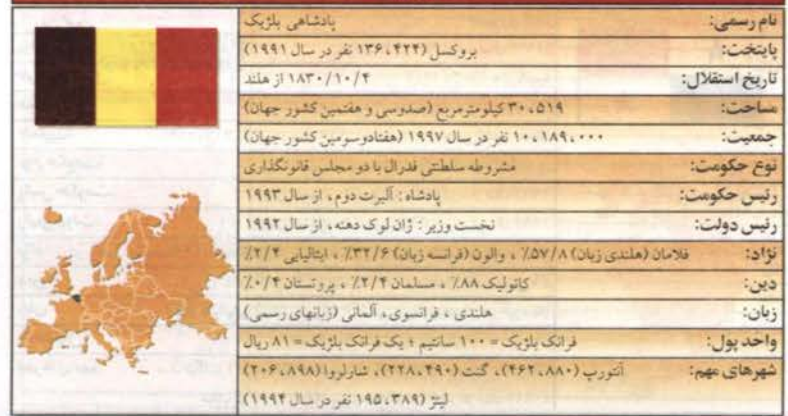 نام رسمی: پادشاهی بلژیک
پایتخت: بروکسل (۱۳۶،۴۲۴ نفر در سال ۱۹۹۱)
تاریخ استقلال: ۱۸۳۰/۱۰/۴ از هلند
مساحت: ۳۰،۵۱۹ کیلومترمربع (صدوسی و هفتمین کشور جهان)
جمعیت: ۱۰،۱۸۹،۰۰۰ نفر در سال ۱۹۹۷ (هفتادوسومین کشور جهان)
نوع حکومت: مشروطه سلطنتی فدرال با دو مجلس قانونگذاری
رئیس حکومت: پادشاه: آلبرت دوم، از سال ۱۹۹۳
رئیس دولت: نخست وزیر: ژان لوک دهنه، از سال ۱۹۹۲
نژاد: فلامان (هلندی زبان) ۵۷/۸٪، والون (فرانسه زبان) ۳۲/۶٪، ایتالیایی ۲/۴٪
دین: کاتولیک ۸۸٪، مسلمان ۲/۴٪، پروتستان ۰/۴٪
زبان: هلندی، فرانسوی، آلمانی (زبانهای رسمی)
واحد پول: فرانک بلژیک = ۱۰۰ سانتیم؛ یک فرانک بلژیک = ۸۱ ریال
شهرهای مهم: آنتورپ (۴۶۲،۸۸۰)، گنت (۲۲۸،۴۹۰)، شارلروا (۲۰۶،۸۹۸)
لیئژ (۱۹۵،۳۸۹ نفر در سال ۱۹۹۴)